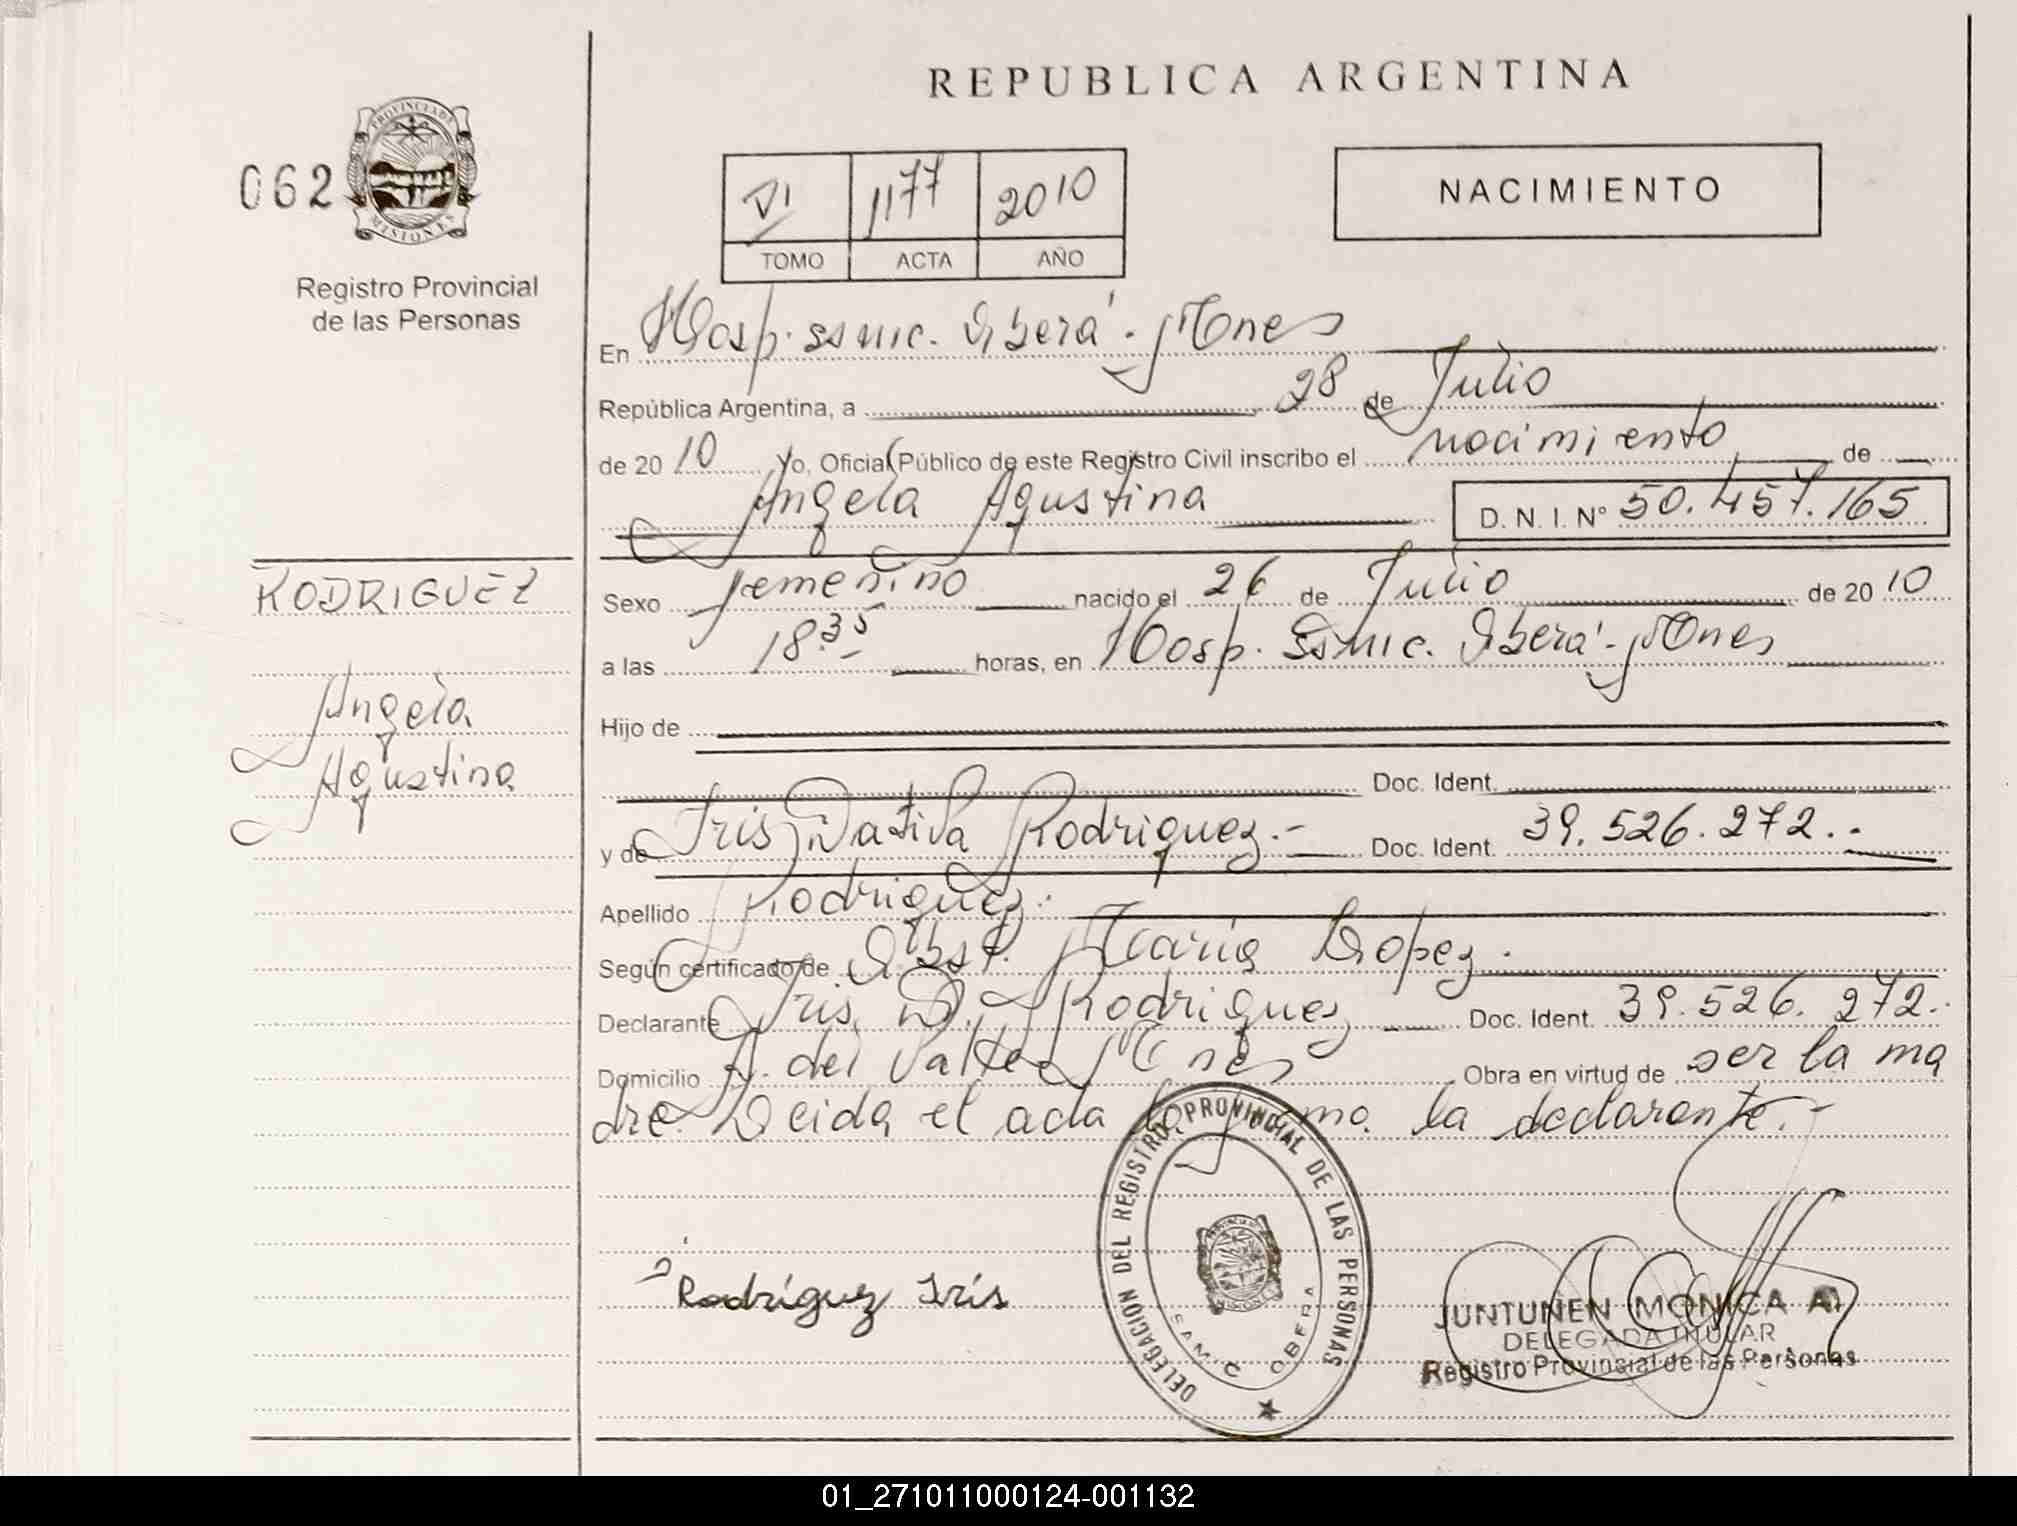 REPUBLICA ARGENTINA
062
PROVINCIA DE
MISIONES
Registro Provincial
de las Personas
VI 1177 2010
TOMO ACTA AÑO
NACIMIENTO
En Hosp. ssmic. Oberá - Mnes
República Argentina, a 28 de Julio
de 2010 Yo, Oficial Público de este Registro Civil inscribo el nacimiento de
Angela Agustina D. N. I. Nº 50.457.165
RODRIGUEZ
Angela
Agustina
Sexo femenino nacido el 26 de Julio de 2010
a las 18.35 horas, en Hosp. Ssmic. Oberá - Mnes
Hijo de
Doc. Ident.
y de Iris Dativa Rodriguez.- Doc. Ident. 39.526.272.-
Apellido Rodriguez.
Según certificado de Obst. Maria Lopez.
Declarante Iris D. Rodriguez Doc. Ident. 39.526.272.
Domicilio A. del Valle Mnes Obra en virtud de ser la ma
dre. Leida el acta la firma la declarante.-
Rodríguez Iris
DELEGACION DEL REGISTRO PROVINCIAL DE LAS PERSONAS
SAMIC OBERA
JUNTUNEN MONICA A.
DELEGADA TITULAR
Registro Provincial de las Personas
01_271011000124-001132